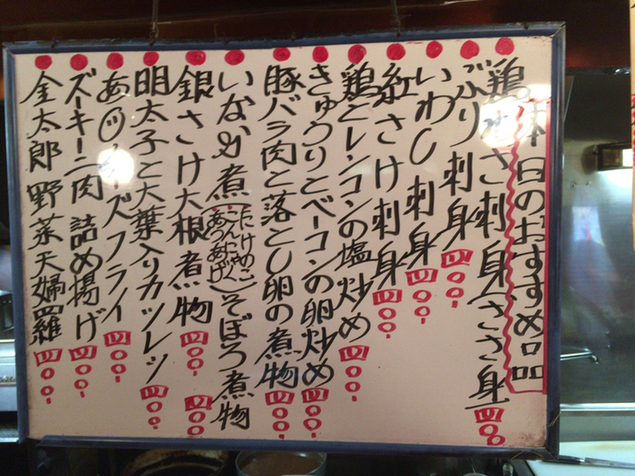 本日のおすすめ品
鶏わさ刺身(ささ身) 四〇〇
ぶり刺身 四〇〇
いわし刺身 四〇〇
紅さけ刺身 四〇〇
鶏とレンコンの塩炒め 四〇〇
きゅうりとベーコンの卵炒め 四〇〇
豚バラ肉と落とし卵の煮物 四〇〇
いなか煮(たけのこ こんにゃく あぶらあげ)そぼろ煮物 四〇〇
銀さけ大根煮物 四〇〇
明太子と大葉入りカツレツ 四〇〇
あじチーズフライ 四〇〇
ズッキーニ肉詰め揚げ 四〇〇
金太郎野菜天婦羅 四〇〇